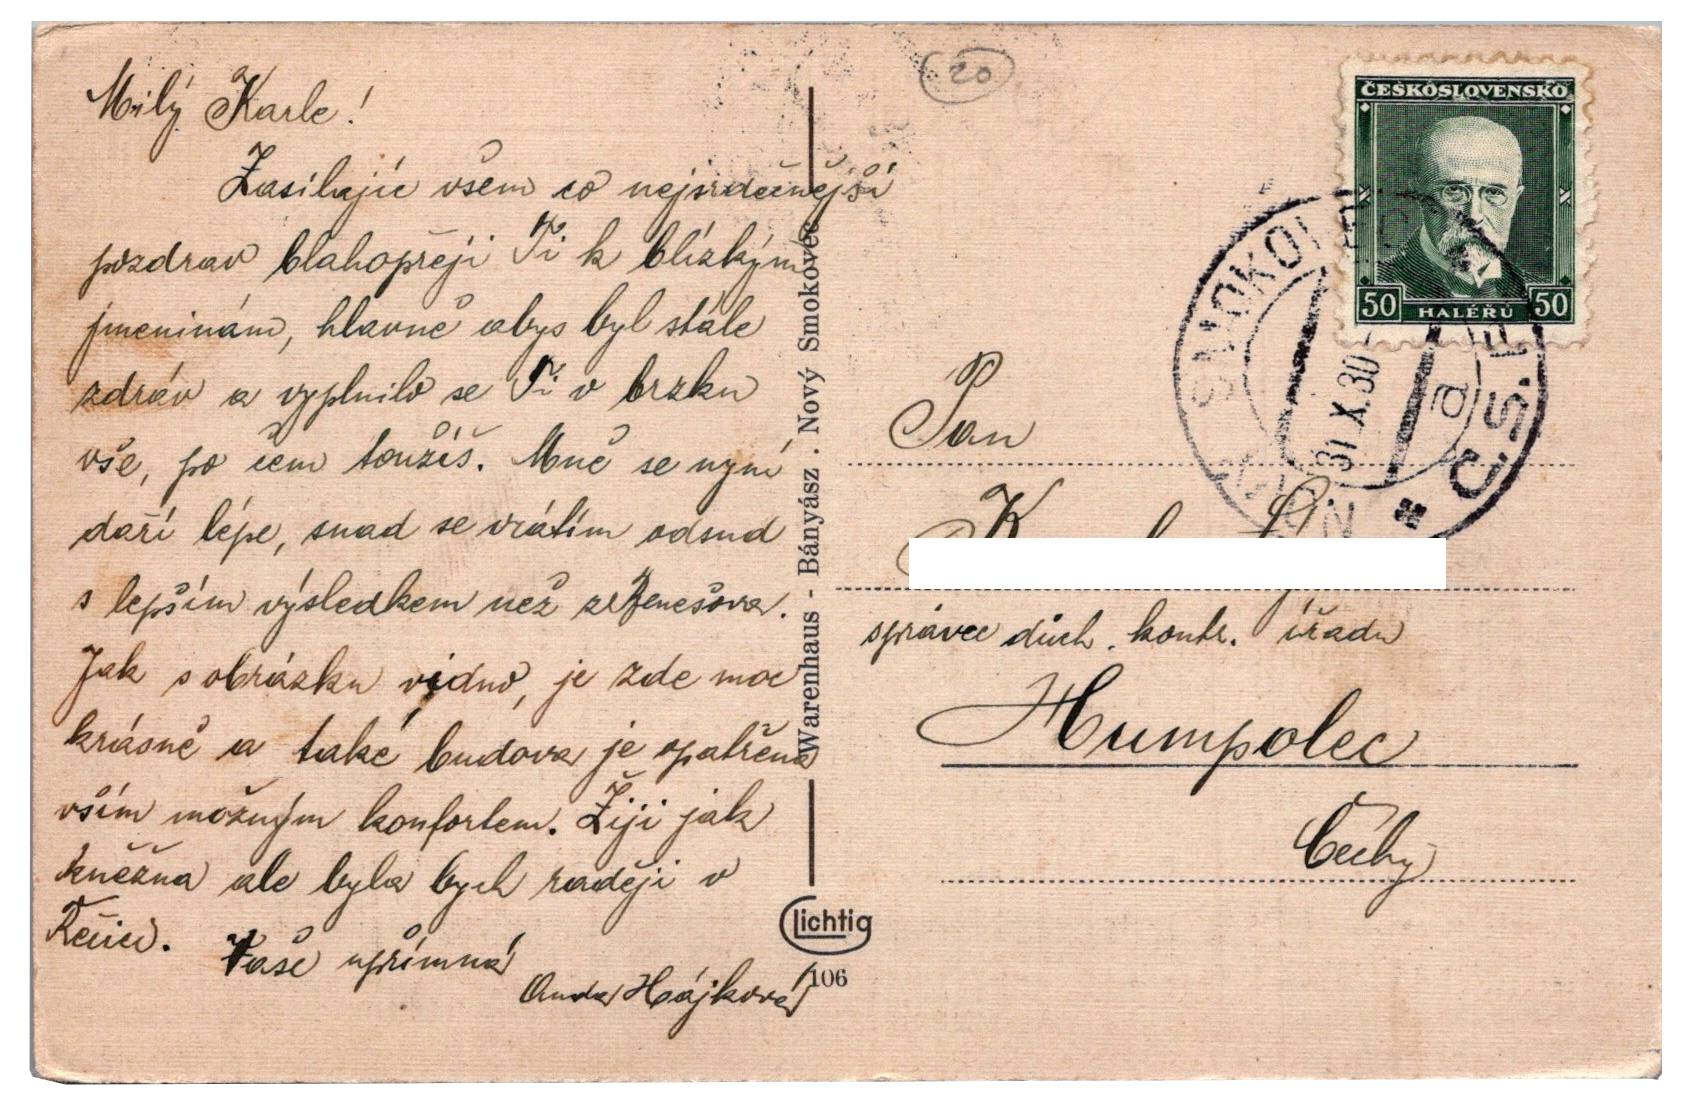 Milý Karle!
Zasílajíc všem co nejsrdečnější
pozdrav blahopřeji Ti k blízkým
jmeninám, hlavně abys byl stále
zdráv a vyplnilo se Ti v brzku
vše, po čem toužíš. Mně se nyní
daří lépe, snad se vrátím odsud
s lepším výsledkem než z Benešova.
Jak s obrázku vidno, je zde moc
krásně a také budova je opatřena
vším možným konfortem. Žiji jak
kněžna ale byla bych raději v
Řečici.
Vaše upřímná
Hájková
Warenhaus - Bányász . Nový Smokovec
Lichtig
106
20
ČESKOSLOVENSKO
50 HALÉŘŮ 50
SMOKOVEC
31.X.30
a
ČS.P.
Pan
správce důch. kontr. úřadu
Humpolec
Čechy